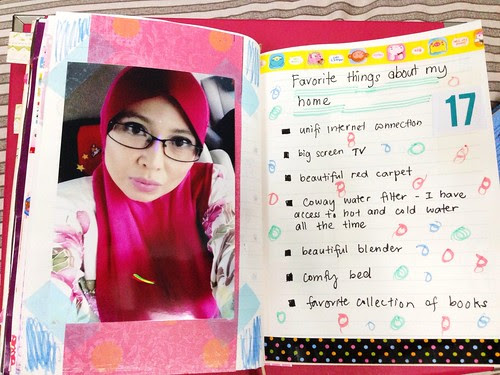 Favorite things about my
home
17
unifi internet connection
big screen TV
beautiful red carpet
Coway water filter - I have
access to hot and cold water
all the time
beautiful blender
comfy bed
favorite collection of books